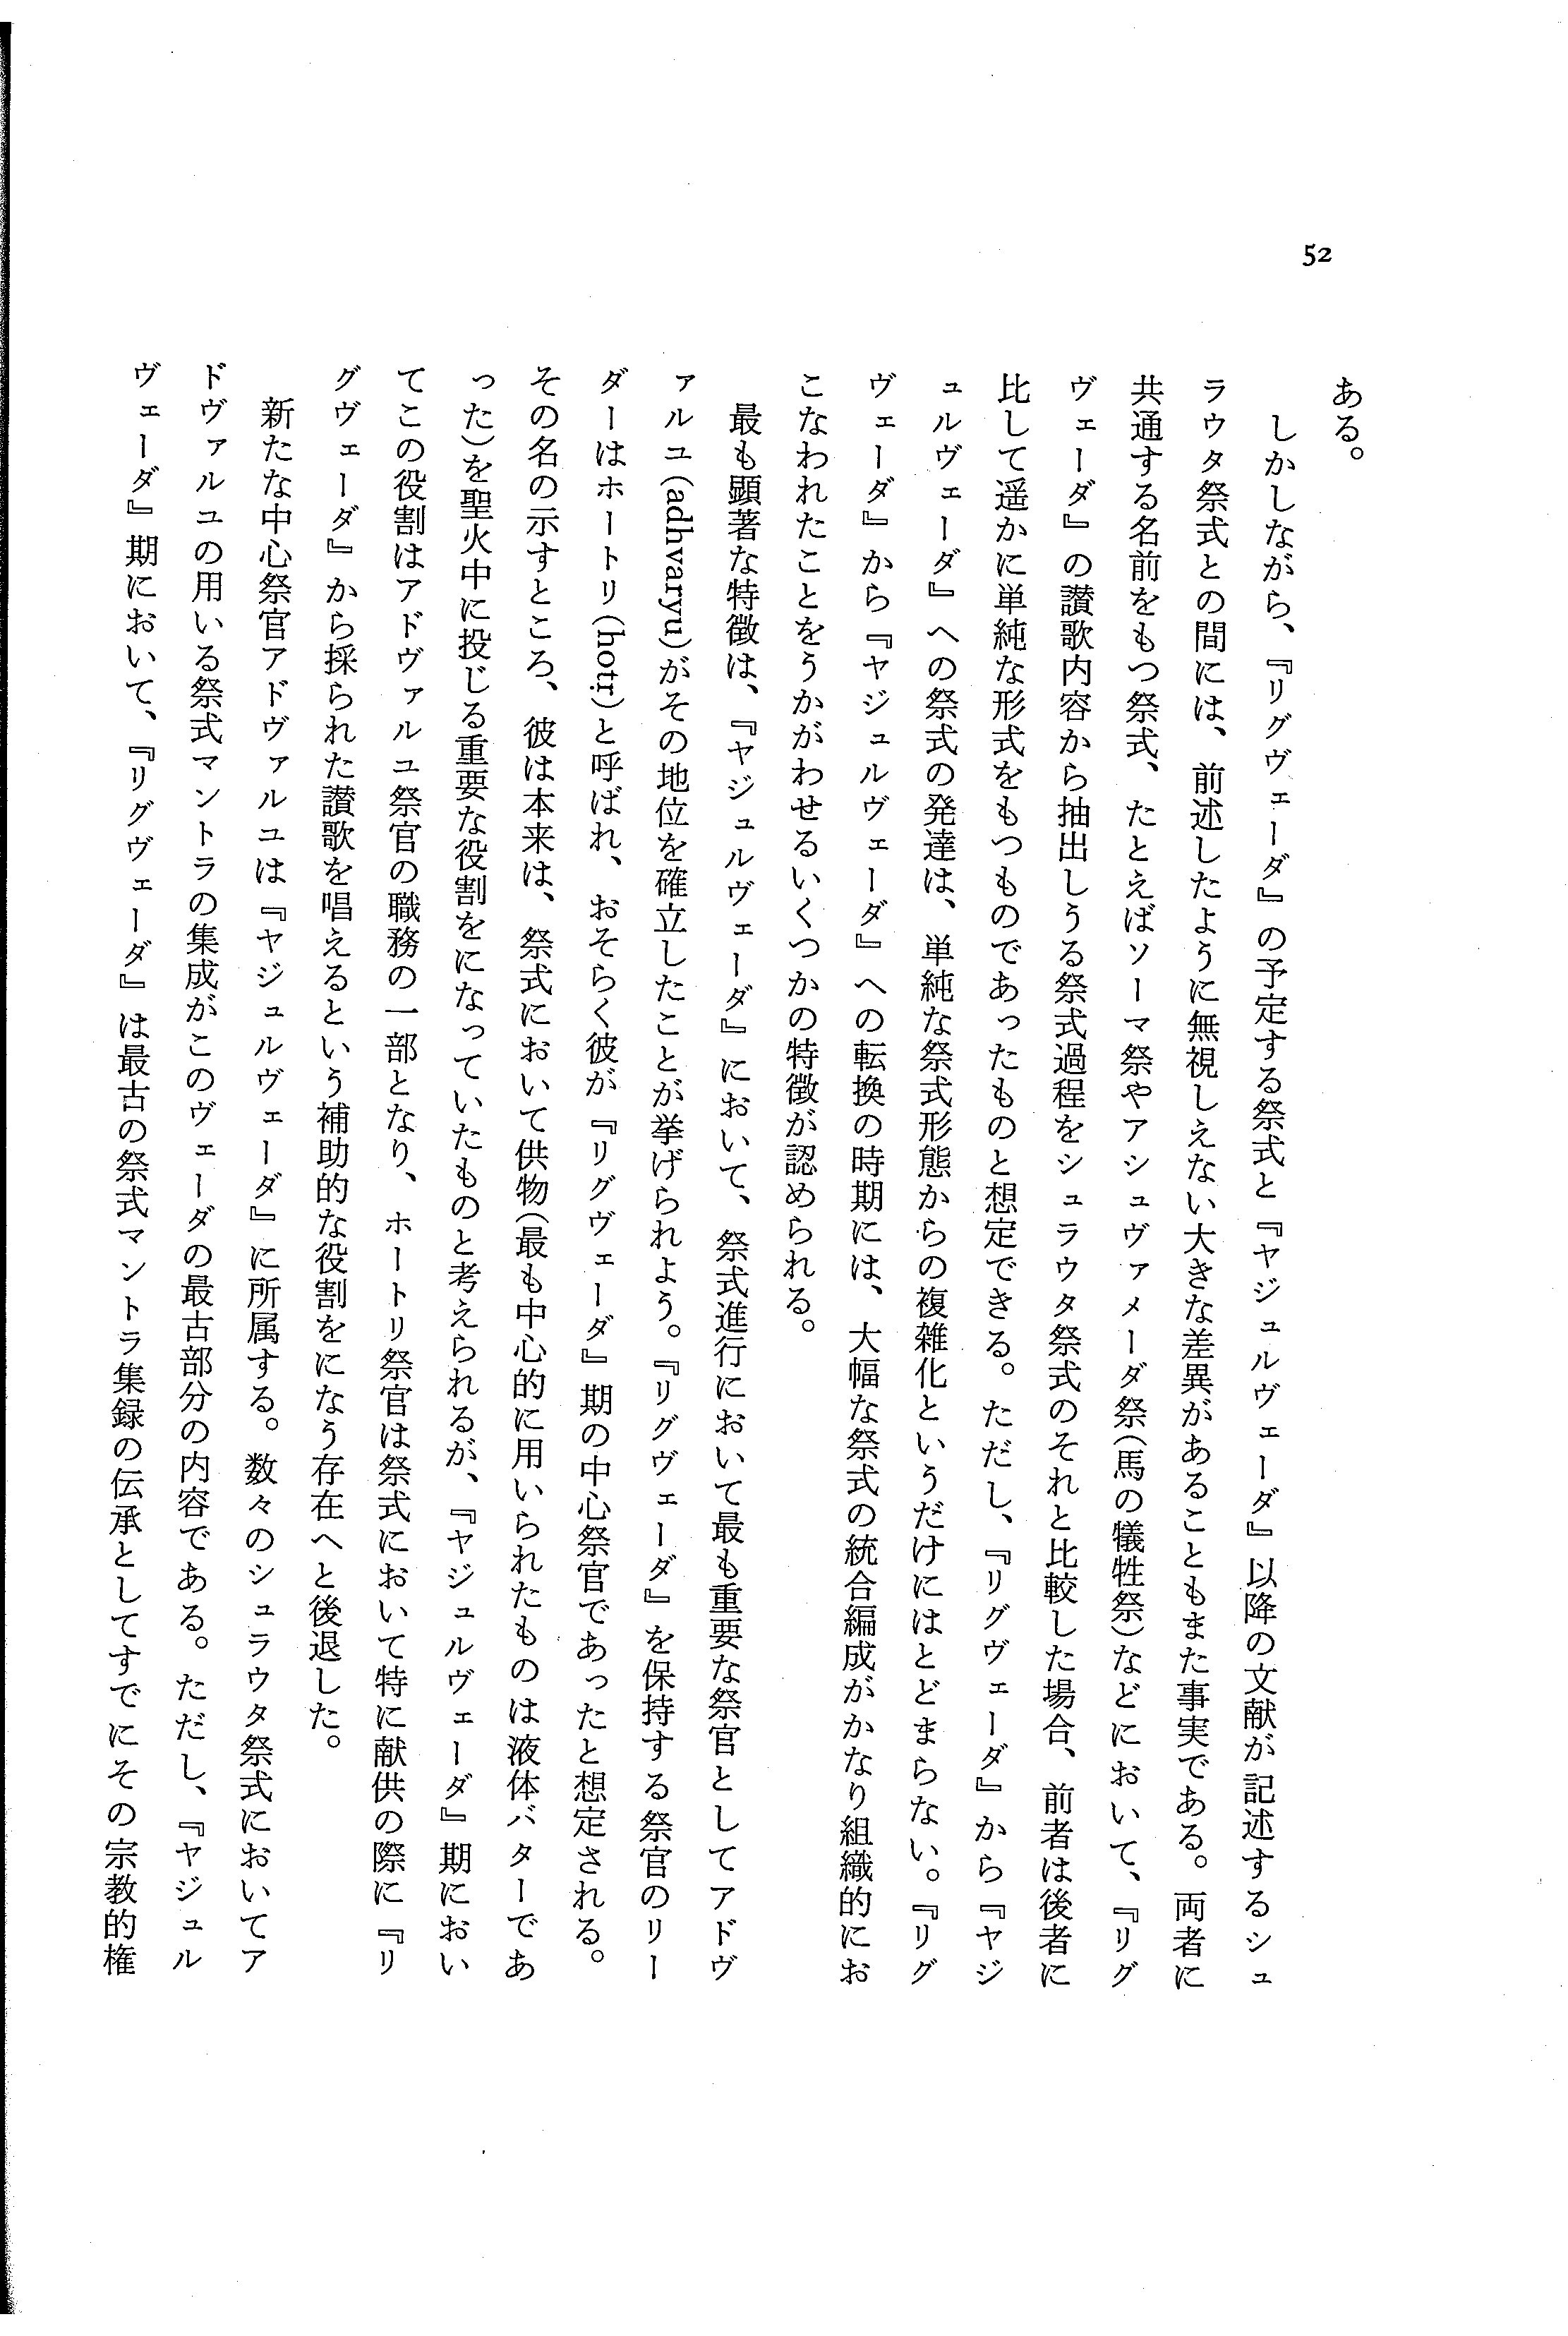 52
ある。
しかしながら、『リグヴェーダ』の予定する祭式と『ヤジュルヴェーダ』以降の文献が記述するシュ
ラウタ祭式との間には、前述したように無視しえない大きな差異があることもまた事実である。両者に
共通する名前をもつ祭式、たとえばソーマ祭やアシュヴァメーダ祭(馬の犠牲祭)などにおいて、『リグ
ヴェーダ』の讃歌内容から抽出しうる祭式過程をシュラウタ祭式のそれと比較した場合、前者は後者に
比して遥かに単純な形式をもつものであったものと想定できる。ただし、『リグヴェーダ』から『ヤジ
ュルヴェーダ』への祭式の発達は、単純な祭式形態からの複雑化というだけにはとどまらない。『リグ
ヴェーダ』から『ヤジュルヴェーダ』への転換の時期には、大幅な祭式の統合編成がかなり組織的にお
こなわれたことをうかがわせるいくつかの特徴が認められる。
最も顕著な特徴は、『ヤジュルヴェーダ』において、祭式進行において最も重要な祭官としてアドヴ
ァルユ(adhvaryu)がその地位を確立したことが挙げられよう。『リグヴェーダ』を保持する祭官のリー
ダーはホートリ(hotṛ)と呼ばれ、おそらく彼が『リグヴェーダ』期の中心祭官であったと想定される。
その名の示すところ、彼は本来は、祭式において供物(最も中心的に用いられたものは液体バターであ
った)を聖火中に投じる重要な役割をになっていたものと考えられるが、『ヤジュルヴェーダ』期におい
てこの役割はアドヴァルユ祭官の職務の一部となり、ホートリ祭官は祭式において特に献供の際に『リ
グヴェーダ』から採られた讃歌を唱えるという補助的な役割をになう存在へと後退した。
新たな中心祭官アドヴァルユは『ヤジュルヴェーダ』に所属する。数々のシュラウタ祭式においてア
ドヴァルユの用いる祭式マントラの集成がこのヴェーダの最古部分の内容である。ただし、『ヤジュル
ヴェーダ』期において、『リグヴェーダ』は最古の祭式マントラ集録の伝承としてすでにその宗教的権